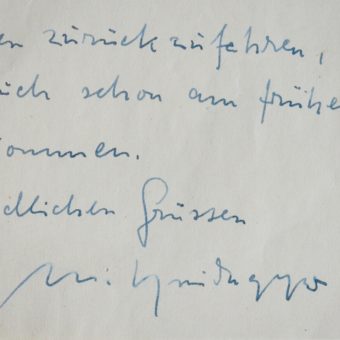 en zurückzufahren,
uch schon am frühe
kommen.
dlichen Grüssen
M. Heidegger